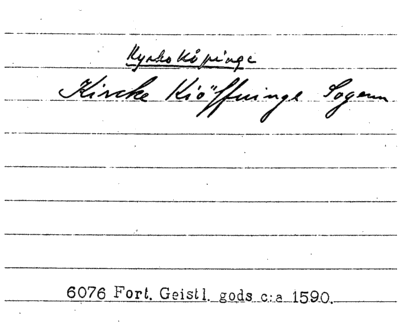 Kyrkoköpinge
Kircke Kiöffuinge Sogenn
6076 Fort. Geistl. gods c:a 1590.